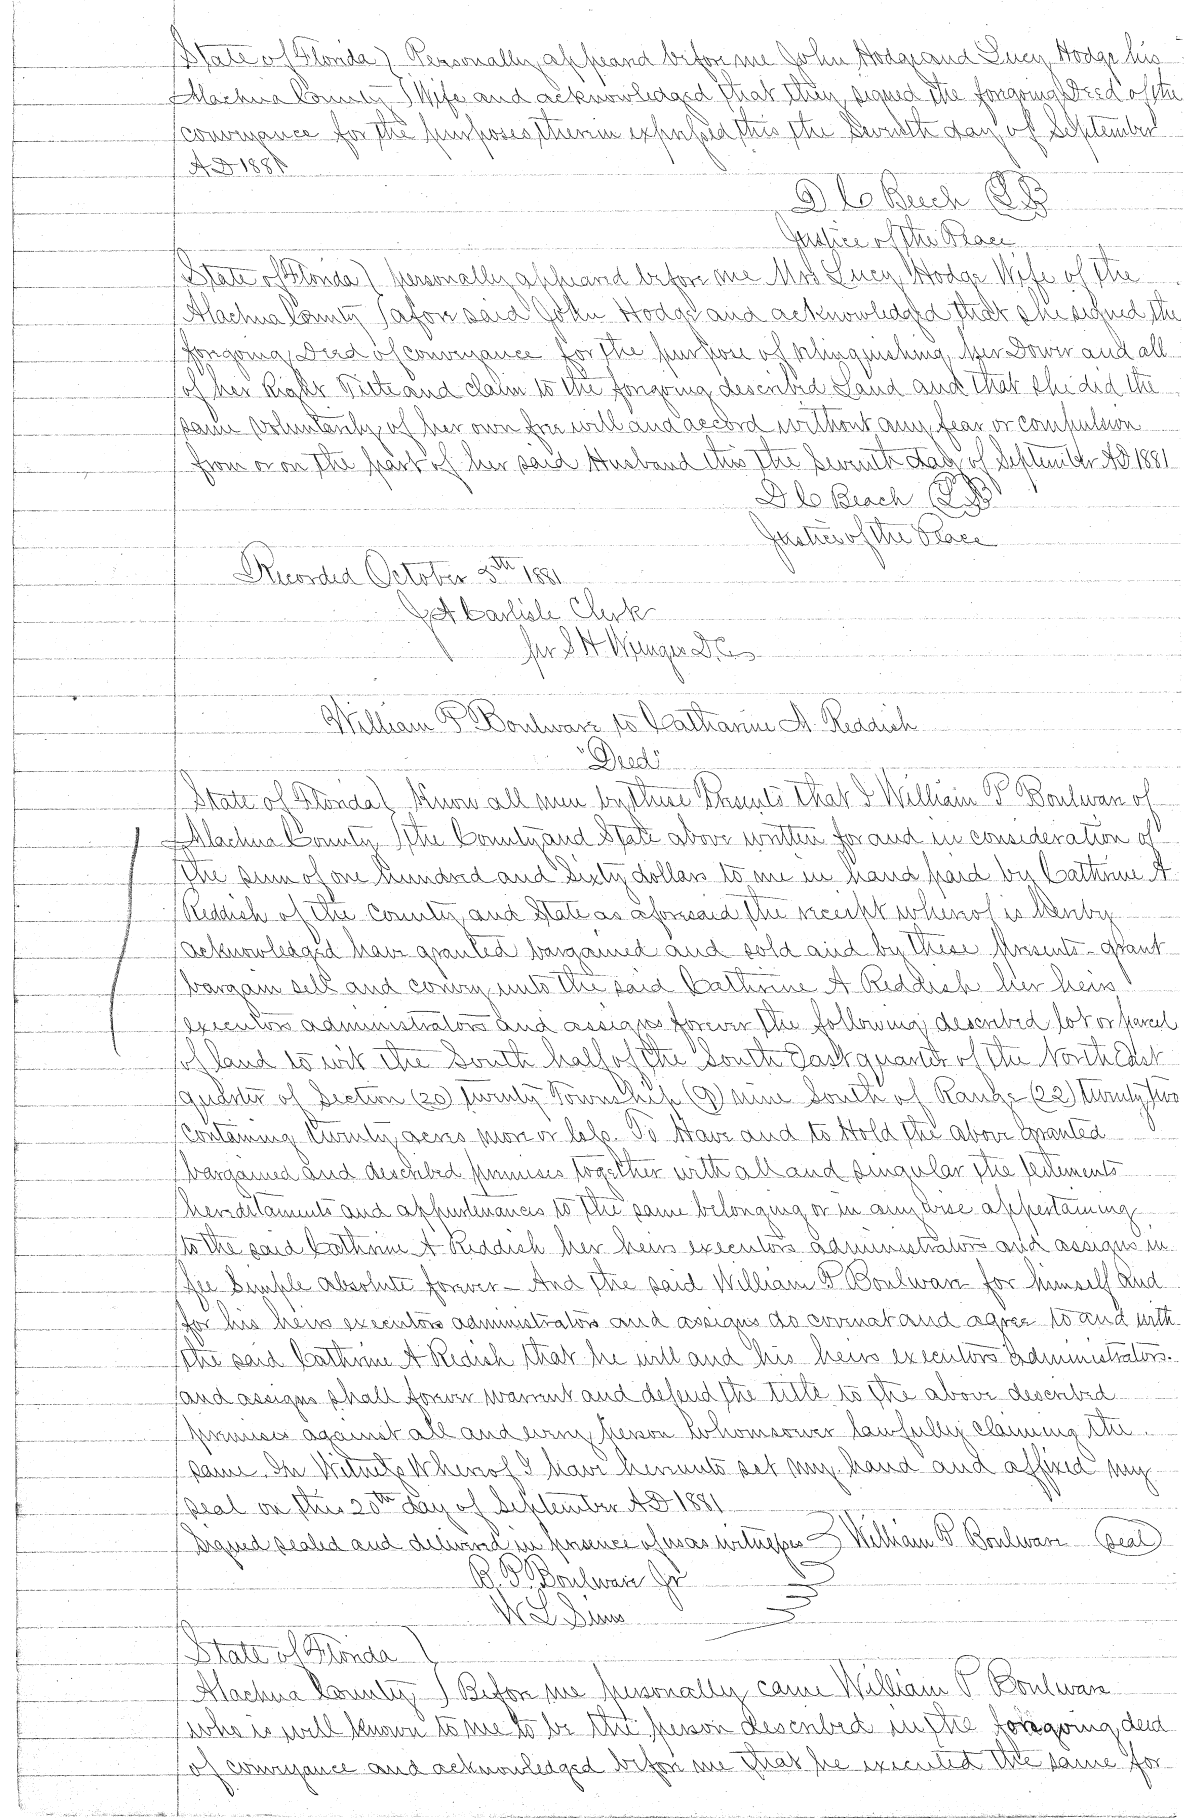 State of Florida ) Personally appeard before me John Hodge and Lucy Hodge his
Alachua County ) Wife and acknowledged that they signed the forgoing Deed of the
conveyance for the purposes therein expressed this the Seventh day of September
A D 1881
D C Beech
Justice of the Peace
State of Florida ) personally appeard before me Mrs Lucy Hodge Wife of the
Alachua County ) afore said John Hodge and acknowledged that she signed the
forgoing Deed of conveyance for the purpose of relinquishing her Dower and all
of her Right Title and claim to the forgoing described Land and that she did the
same voluntarily of her own free will and accord without any fear or compulsion
from or on the part of her said Husband this the Seventh day of September AD 1881
D C Beach
Justice of the Peace
Recorded October 5th 1881
J A Carlisle Clerk
per S H Wienges D.C.
William P Boulware to Catharine A. Reddish
"Deed"
State of Florida ) Know all men by these Presents that I William P Boulware of
Alachua County ) the County and State above written for and in consideration of
the sum of one hundred and Sixty dollars to me in hand paid by Cathrine A
Reddish of the County and State as aforesaid the receipt whereof is hereby
acknowledged have granted bargained and sold and by these presents - grant
bargain sell and convey unto the said Cathrine A Reddish her heirs
executors administrators and assigns forever the following described lot or parcel
of land to wit the South half of the South East quarter of the North East
quarter of Section (20) twenty Township (9) nine South of Range (22) twenty two
Containing twenty acres more or less. To Have and to Hold the above granted
bargained and described premises together with all and singular the tentements
hereditaments and appurtenances to the same belonging or in any wise appertaining
to the said Cathrine A Reddish her heirs executors administrators and assigns in
fee Simple absolute forever - And the said William P Boulware for himself and
for his heirs executors administrators and assigns do covenat and agree to and with
the said Cathrine A Redish that he will and his heirs executors administrators.
and assigns shall forever warrent and defend the title to the above described
premises against all and every person whomsoever lawfully claiming the
same. In Witness Whereof I have hereunto set my hand and affixed my
seal on this 20th day of September AD 1881
Signed sealed and delivered in presence of us as witnesses William P Boulware (seal)
B. P. Boulware Jr
W L Sims
State of Florida )
Alachua County ) Before me personally came William P Boulware
who is well known to me to be the person described in the forgoing deed
of conveyance and acknowledged before me that he executed the same for